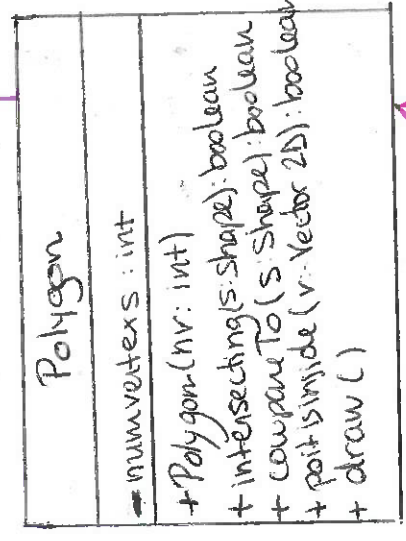 Polygon
- numvertexs : int
+ Polygon (nv: int)
+ intersecting (s: shape): boolean
+ compareTo (s: shape): boolean
+ poitisinside (v: Vector 2D): boolean
+ draw ( )